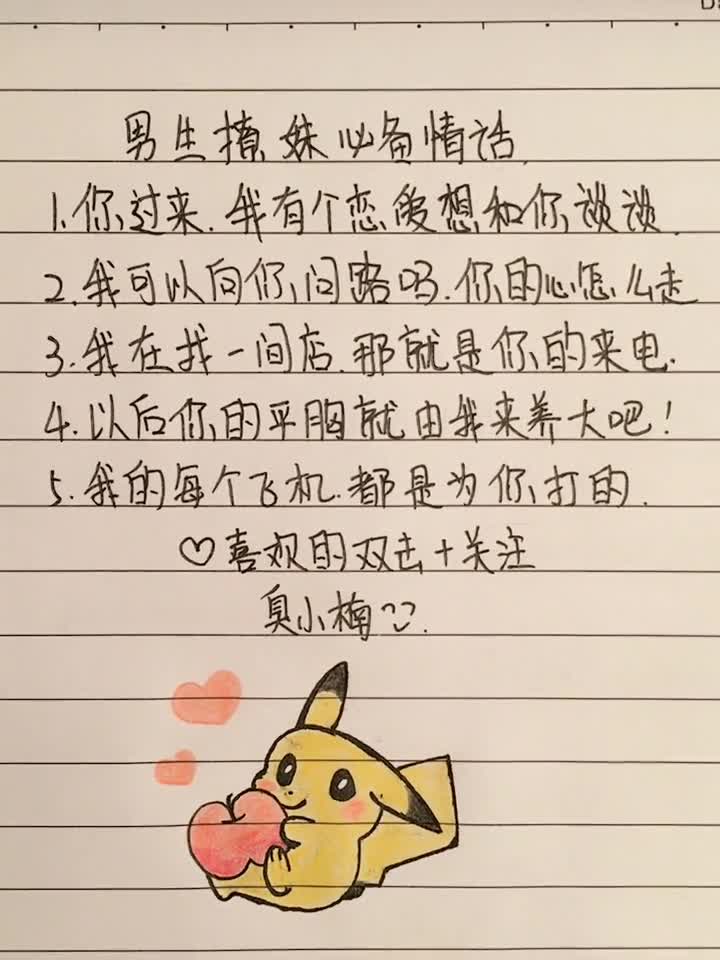 男生撩妹必备情话
1.你过来.我有个恋爱想和你谈谈.
2.我可以向你问路吗.你的心怎么走
3.我在找一间店.那就是你的来电.
4.以后你的平胸就由我来养大吧!
5.我的每个飞机.都是为你打的.
♡喜欢的双击+关注
臭小楠